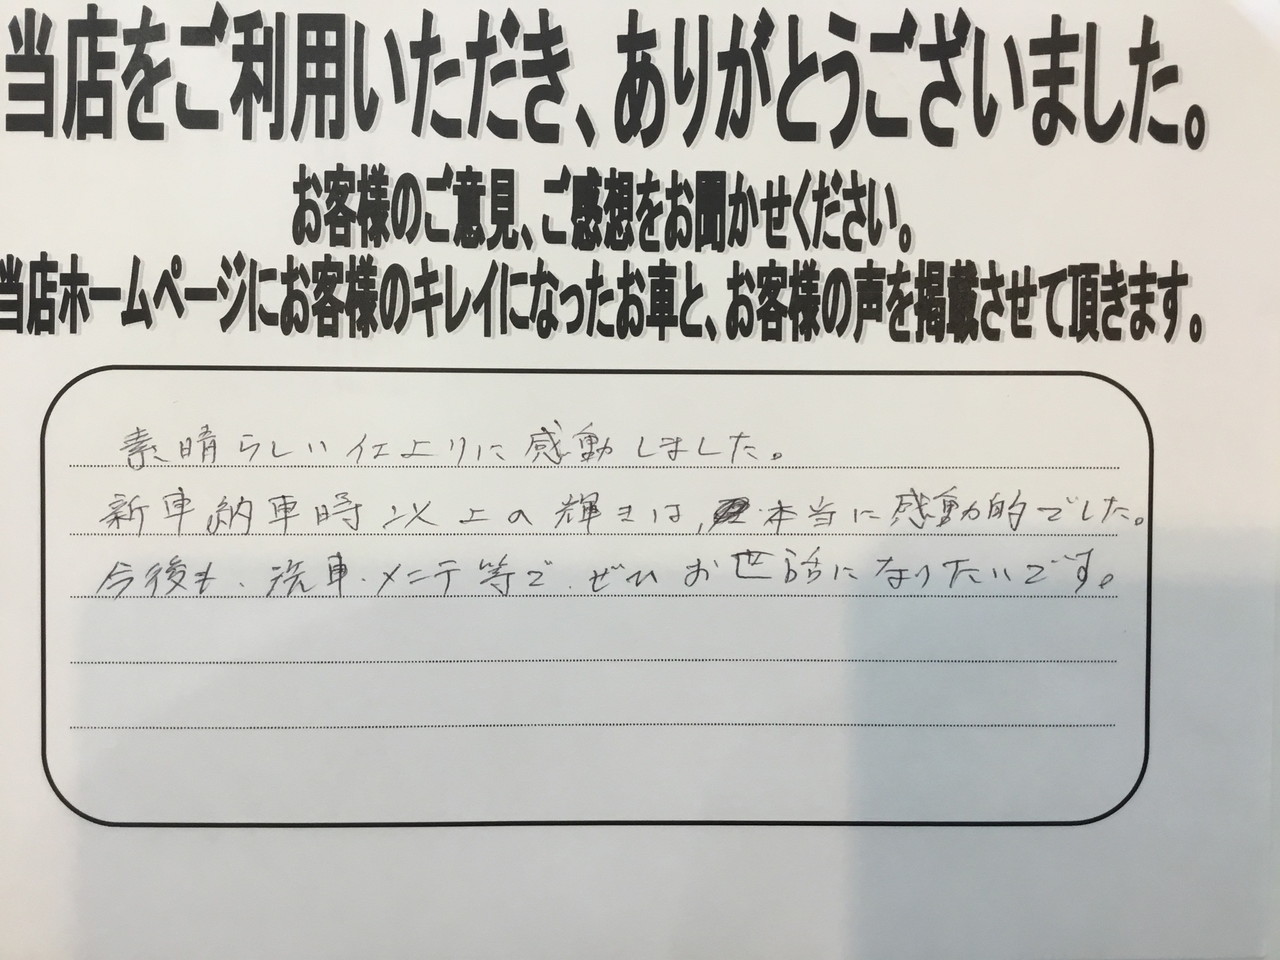 当店をご利用いただき、ありがとうございました。
お客様のご意見、ご感想をお聞かせください。
当店ホームページにお客様のキレイになったお車と、お客様の声を掲載させて頂きます。
素晴らしい仕上りに感動しました。
新車納車時以上の輝きは、本当に感動的でした。
今後も、洗車・メンテ等で、ぜひお世話になりたいです。